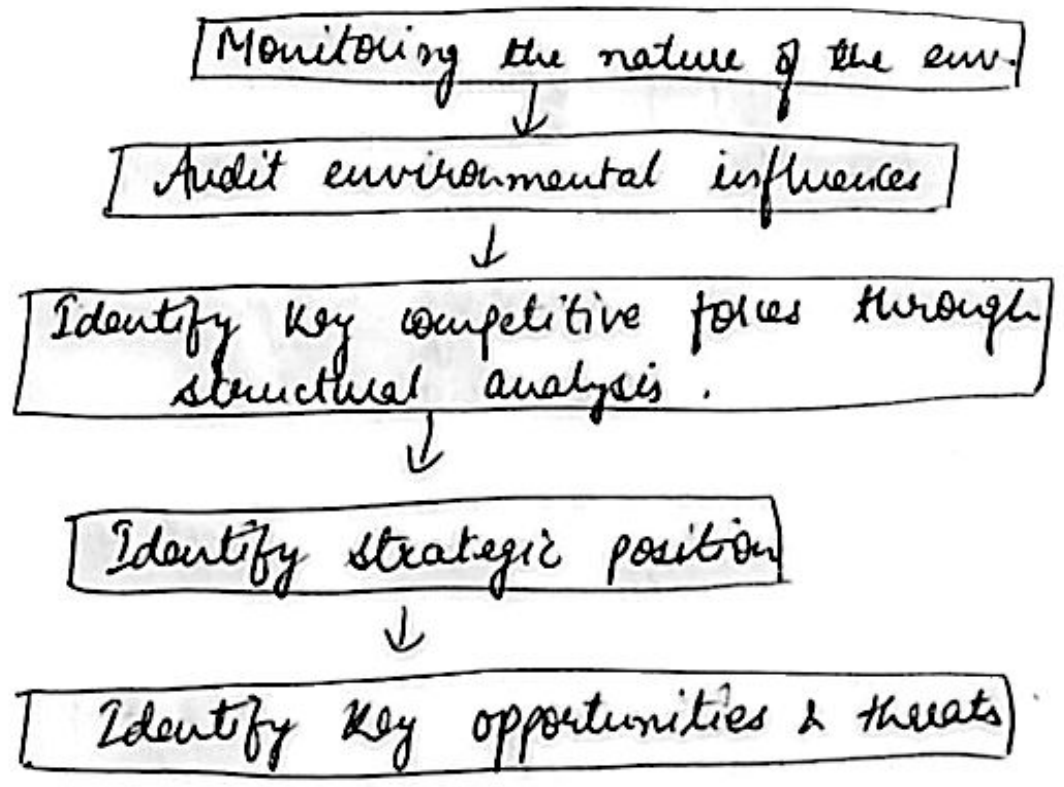 Monitoring the nature of the env.
Audit environmental influences
Identify key competitive forces through
structural analysis.
Identify strategic position
Identify key opportunities & threats